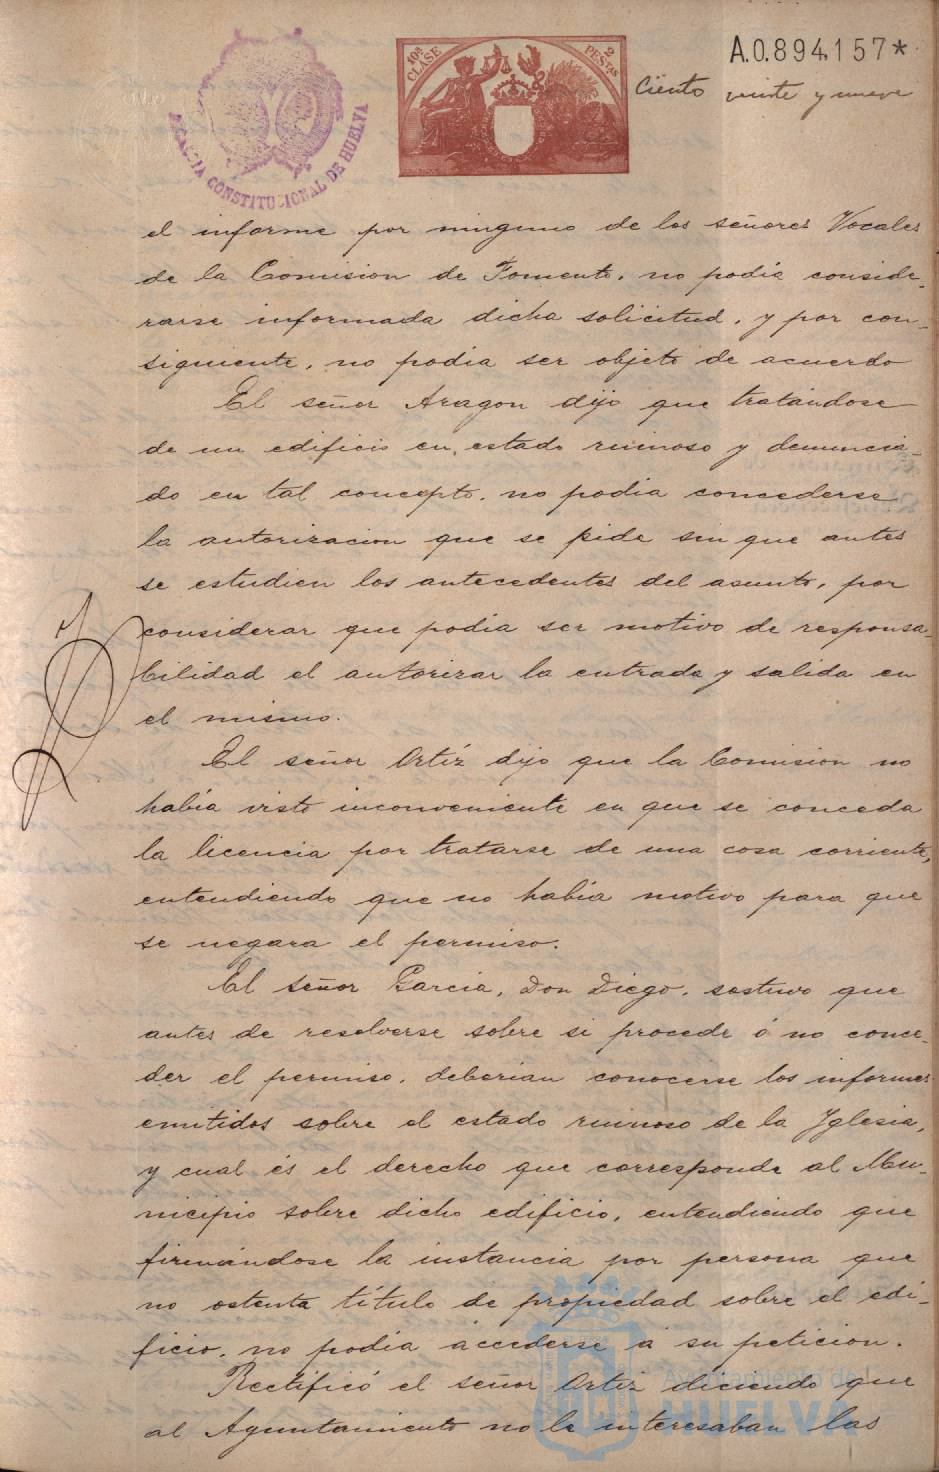 A.0.894.157*
10ª CLASE 2 PESTAS
Ciento veinte y nueve
ALCALDIA CONSTITUCIONAL DE HUELVA
el informe por ninguno de los señores Vocales
de la Comision de Fomento, no podia conside-
rarse informada dicha solicitud, y por con-
siguiente, no podia ser objeto de acuerdo
El señor Aragon dijo que tratándose
de un edificio en estado ruinoso y denuncia-
do en tal concepto, no podia concederse
la autorizacion que se pide sin que antes
se estudien los antecedentes del asunto, por
considerar que podia ser motivo de responsa-
bilidad el autorizar la entrada y salida en
el mismo.
El señor Ortíz dijo que la Comision no
había visto inconveniente en que se conceda
la licencia por tratarse de una cosa corriente,
entendiendo que no había motivo para que
se negara el permiso.
El señor Garcia, Don Diego, sostuvo que
antes de resolverse sobre si procede ó no conce-
der el permiso, deberian conocerse los informes
emitidos sobre el estado ruinoso de la Yglesia,
y cual és el derecho que corresponde al Mu-
nicipio sobre dicho edificio, entendiendo que
firmándose la instancia por persona que
no ostenta título de propiedad sobre el edi-
ficio, no podia accederse á su peticion.
Rectificó el señor Ortiz diciendo que
al Ayuntamiento no le interesaban las
Ayuntamiento de
HUELVA